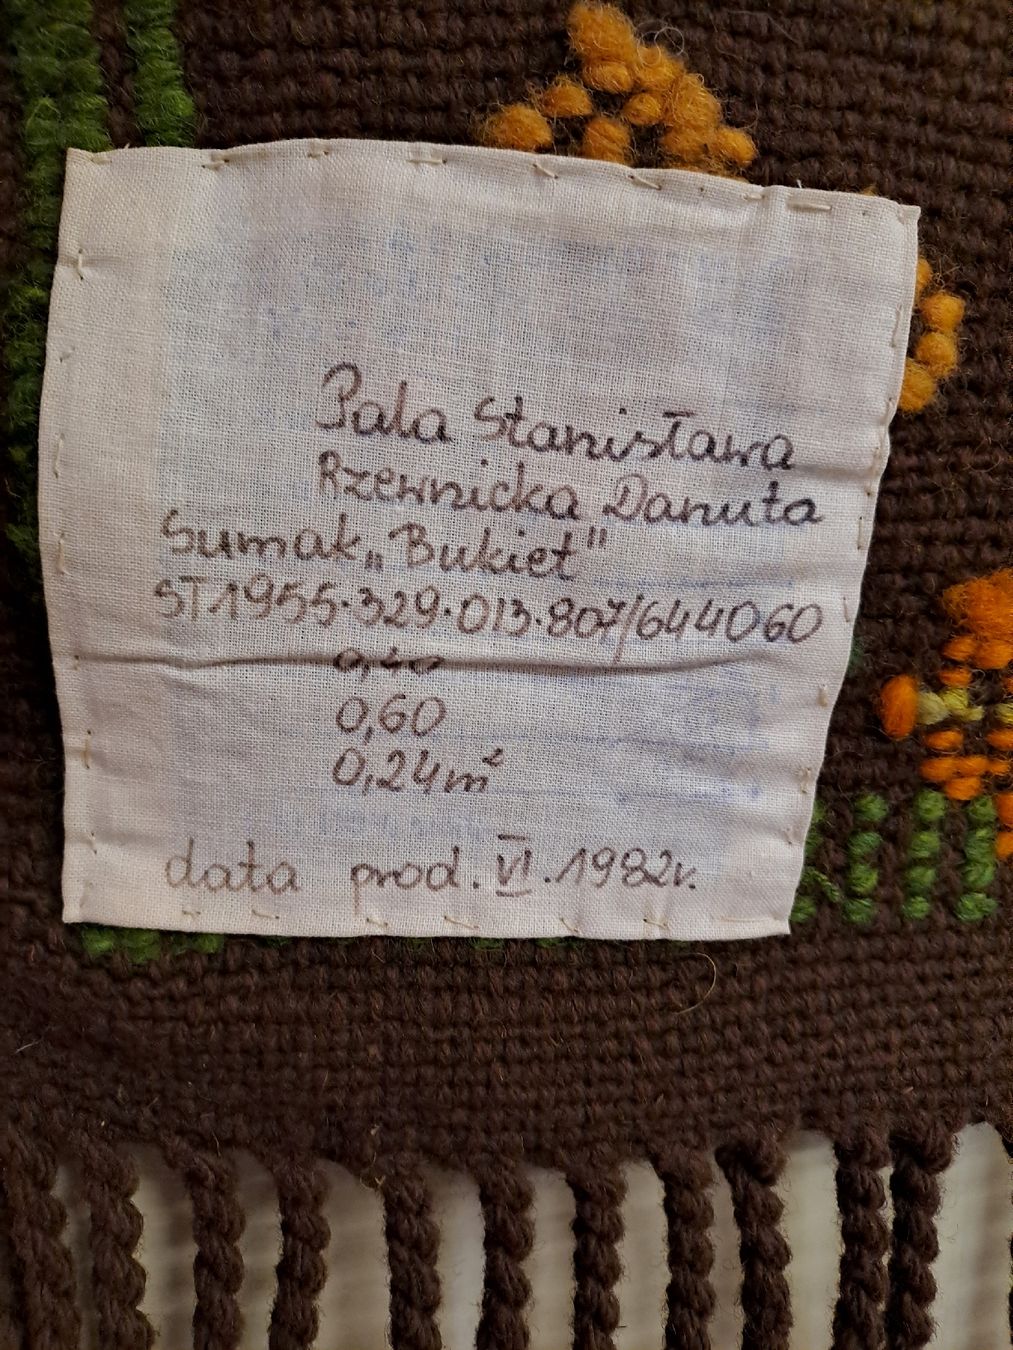 Pala Stanisława
Rzewnicka Danuta
Sumak „Bukiet"
ST1955·329·013·807/644060
0,40
0,60
0,24m²
data prod. VI.1982r.